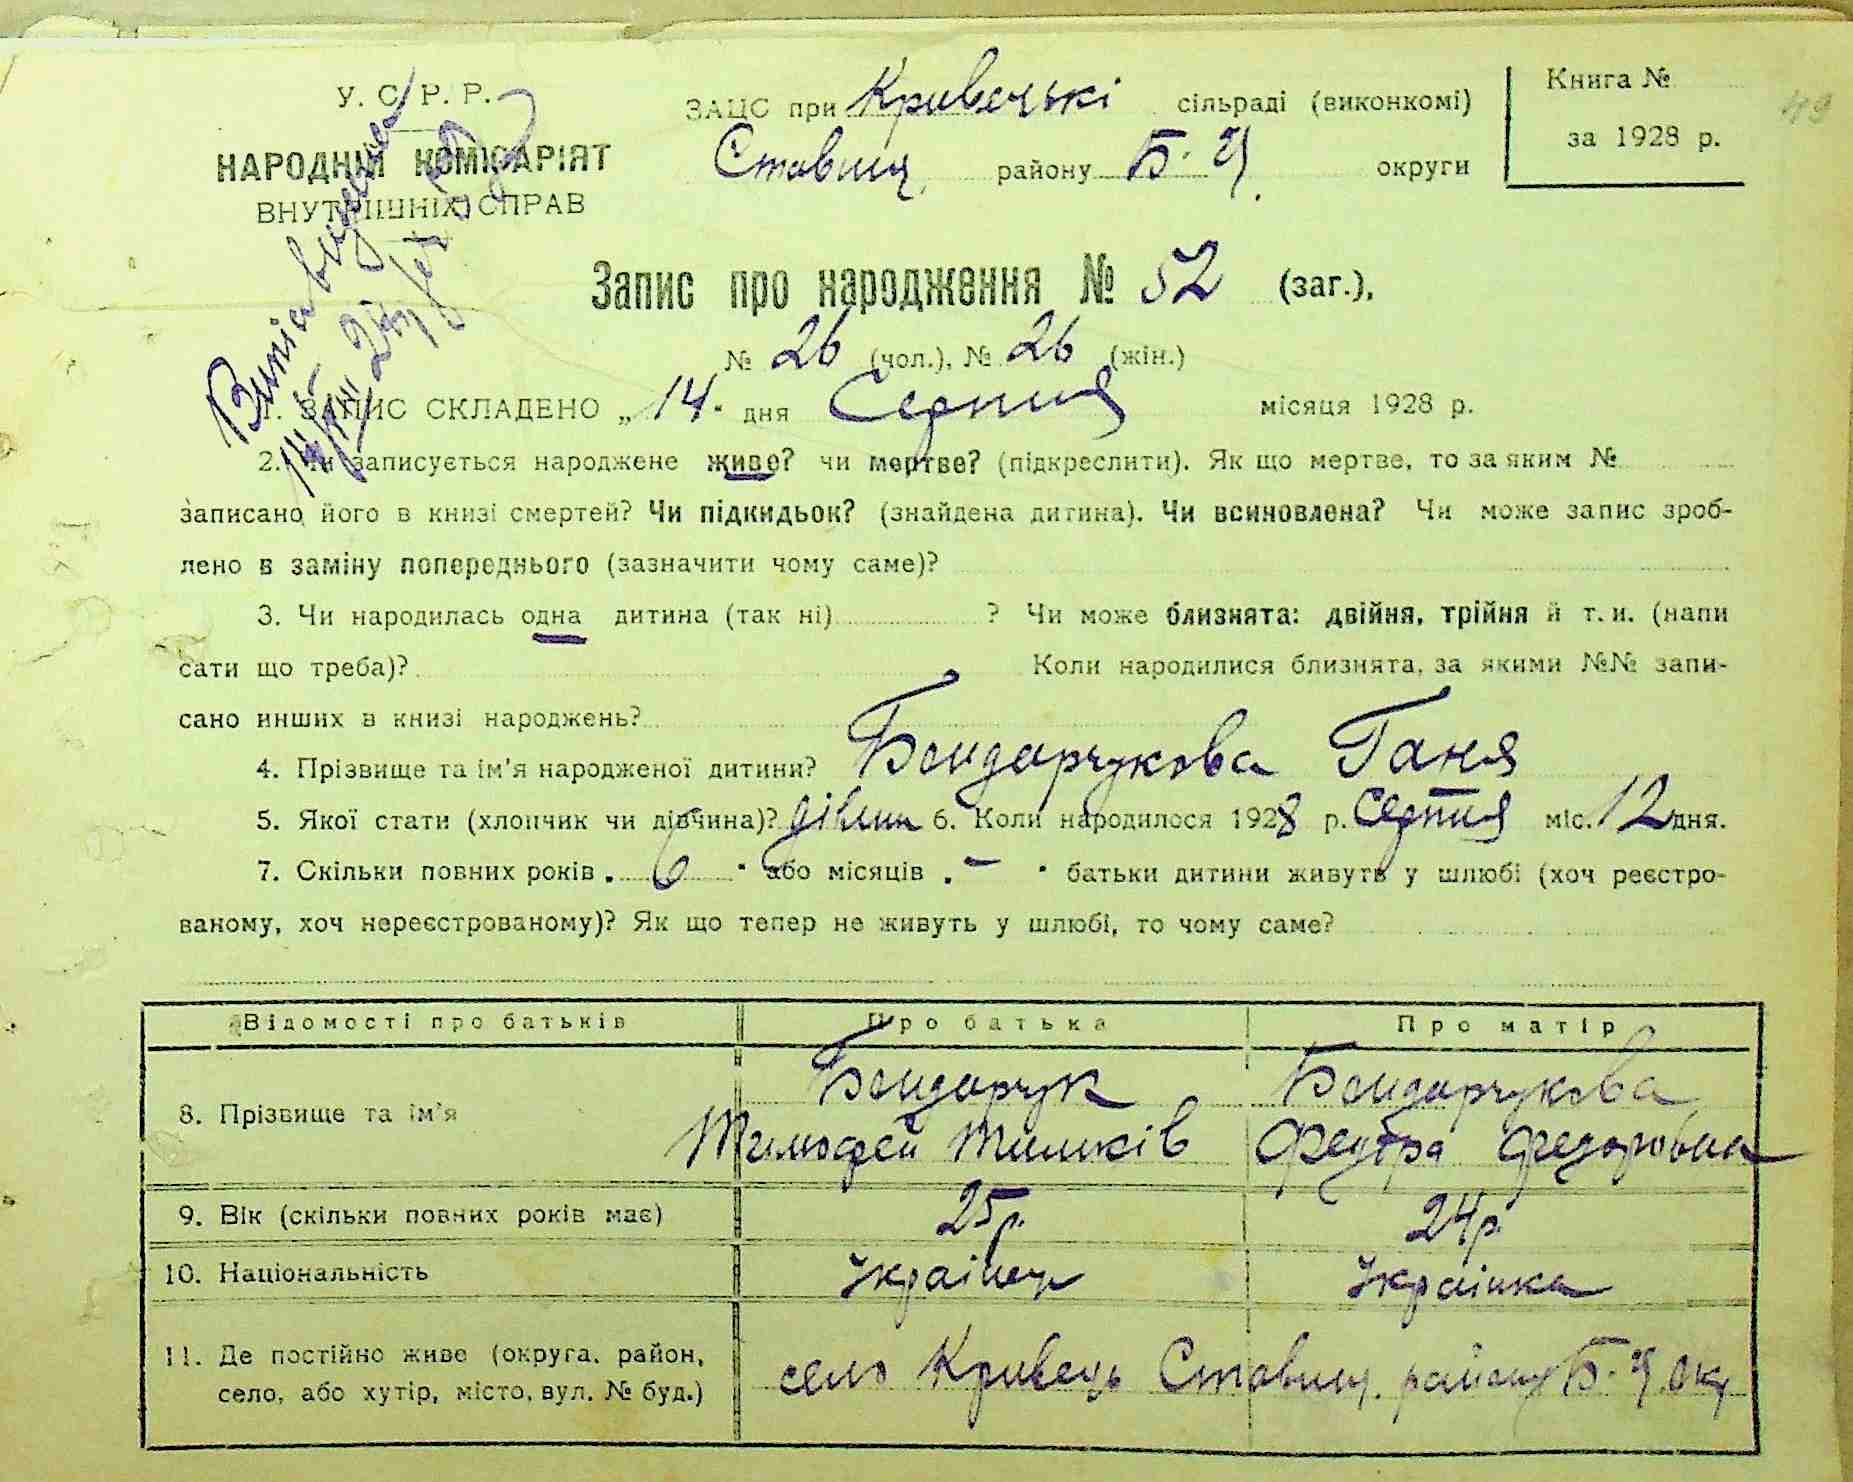 У. С. Р. Р.
НАРОДНІЙ КОМІСАРІЯТ
ВНУТРІШНІХ СПРАВ
ЗАЦС при Кривецькі сільраді (виконкомі)
Ставищ. району Б. Ц. округи
Книга №
за 1928 р.
49
Запис про народження № 52 (заг.),
№ 26 (чол.), № 26 (жін.)
1. ЗАПИС СКЛАДЕНО „14" дня Серпня місяця 1928 р.
2. Чи записується народжене живе? чи мертве? (підкреслити). Як що мертве, то за яким №
записано його в книзі смертей? Чи підкидьок? (знайдена дитина). Чи всиновлена? Чи може запис зроб-
лено в заміну попереднього (зазначити чому саме)?
3. Чи народилась одна дитина (так ні) ? Чи може близнята: двійня, трійня й т. и. (напи
сати що треба)? Коли народилися близнята, за якими №№ запи-
сано инших в книзі народжень?
4. Прізвище та ім'я народженої дитини? Бондарчукова Ганя
5. Якої стати (хлопчик чи дівчина)? 6. Коли народилося 1928 р. Серпня міс. 12 дня.
7. Скільки повних років „ 6 " або місяців „ – " батьки дитини живуть у шлюбі (хоч реєстро-
ваному, хоч нереєстрованому)? Як що тепер не живуть у шлюбі, то чому саме?
Відомості про батьків Про батька Про матір
8. Прізвище та ім'я Бондарчук Бондарчукова
Тимофей Федора Федоровна
9. Вік (скільки повних років має) 25 р. 24 р.
10. Національність Українец Українка
11. Де постійно живе (округа, район,
село, або хутір, місто, вул. № буд.) село Кривець Ставищ. району Б. Ц. Окр